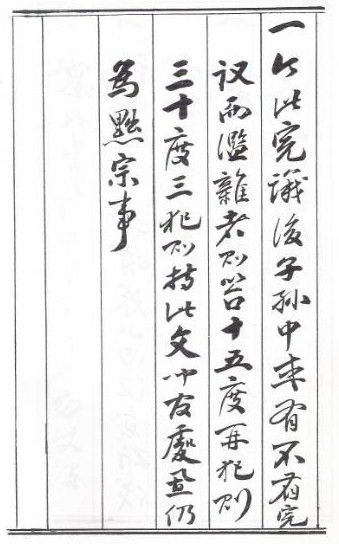 一今此完議後子孫中幸有不有完
议而濫雜者則笞十五度再犯則
三十度三犯則持此文處置仍
為黜宗事